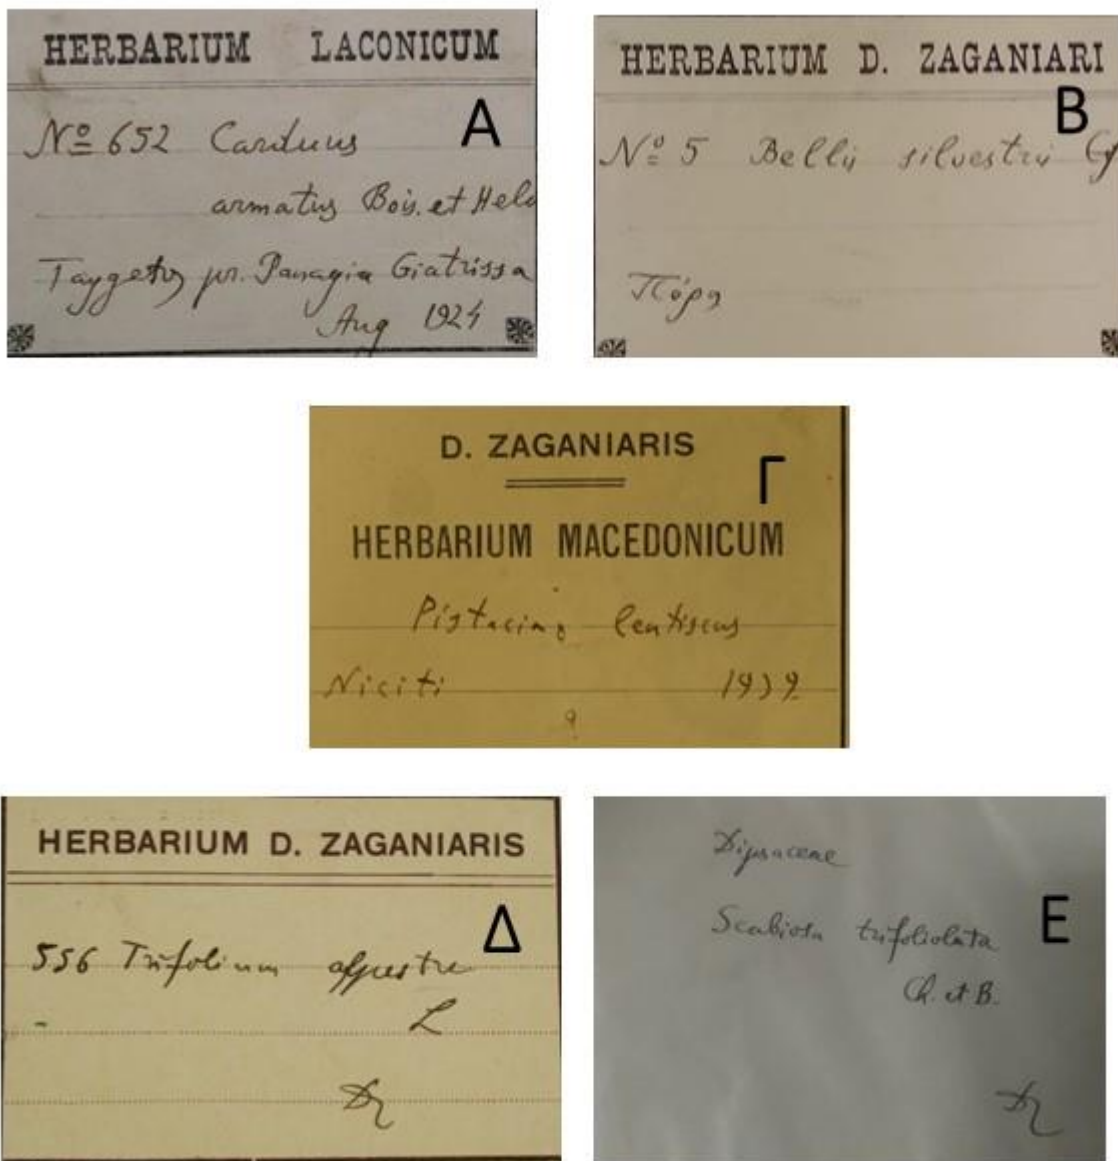 HERBARIUM LACONICUM
A
Nº 652 Carduus
armatus Bois. et Held
Taygetos pr. Panagia Giatrissa
Aug 1924
HERBARIUM D. ZAGANIARI
B
Nº 5 Bellis silvestris
Πόρος
D. ZAGANIARIS
Γ
HERBARIUM MACEDONICUM
Pistacia lentiscus
Niciti 1939
HERBARIUM D. ZAGANIARIS
Δ
556 Trifolium alpestre
L
DZ
Dipsaceae
Scabiosa trifoliolata E
Ch. et B.
DZ